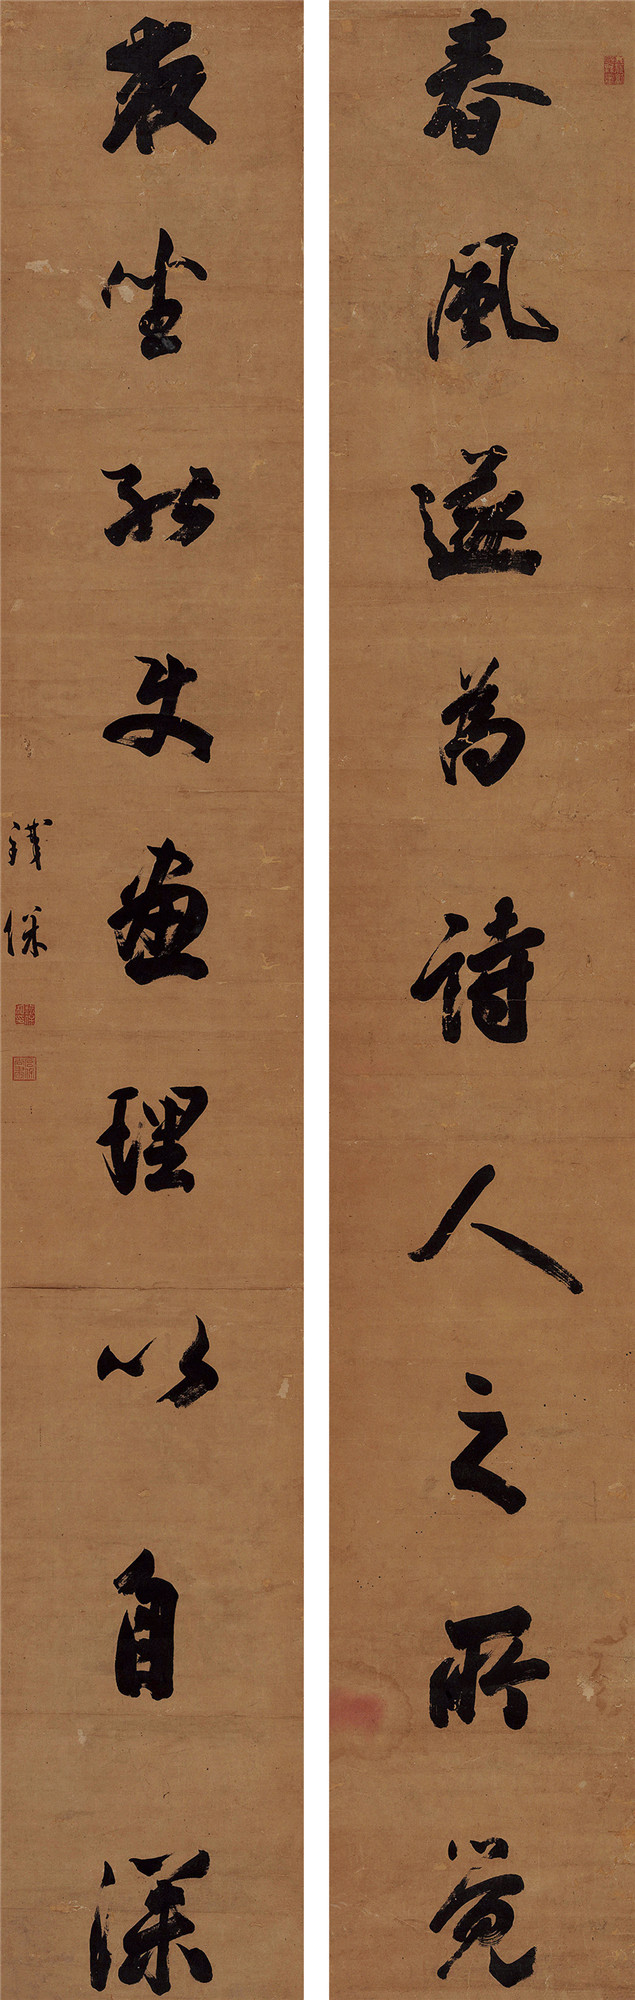 春風遂為詩人之所覺
夜坐能使畫理以自深
鐵保